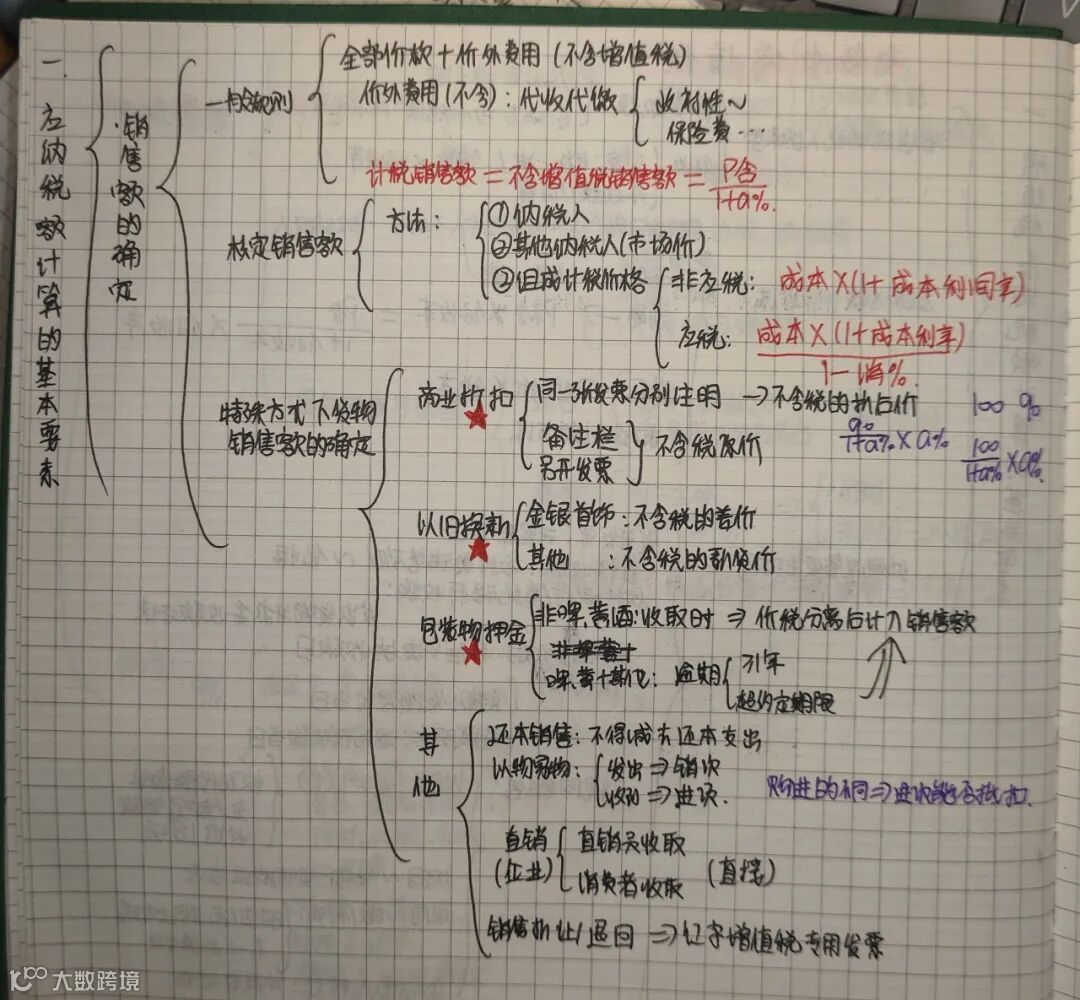 一、应纳税额计算的基本要素
销售额的确定
一般规则
全部价款＋价外费用（不含增值税）
价外费用（不含）：代收代缴
政府性～
保险费…
计税销售额＝不含增值税销售额＝P含/1+a%
核定销售额
方法：
①纳税人
②其他纳税人（市场价）
③组成计税价格
非应税：成本×(1+成本利润率)
应税：成本×(1+成本利率)/1－消%
特殊方式下货物销售额的确定
商业折扣
同一张发票分别注明→不含税的折后价
100 90
90/1+a%×a%
100/1+a%×a%
备注栏
另开发票
不含税原价
以旧换新
金银首饰：不含税的差价
其他：不含税的新货价
包装物押金
非啤黄酒：收取时⇒价税分离后计入销售额
啤黄+其他：逾期
>1年
超约定期限
其他
还本销售：不得减去还本支出
以物易物：
发出⇒销项
收到⇒进项.
购进的不同⇒进项能否抵扣.
直销（企业）
直销员收取
消费者收取
（直接）
销售折让/退回⇒红字增值税专用发票
大数跨境